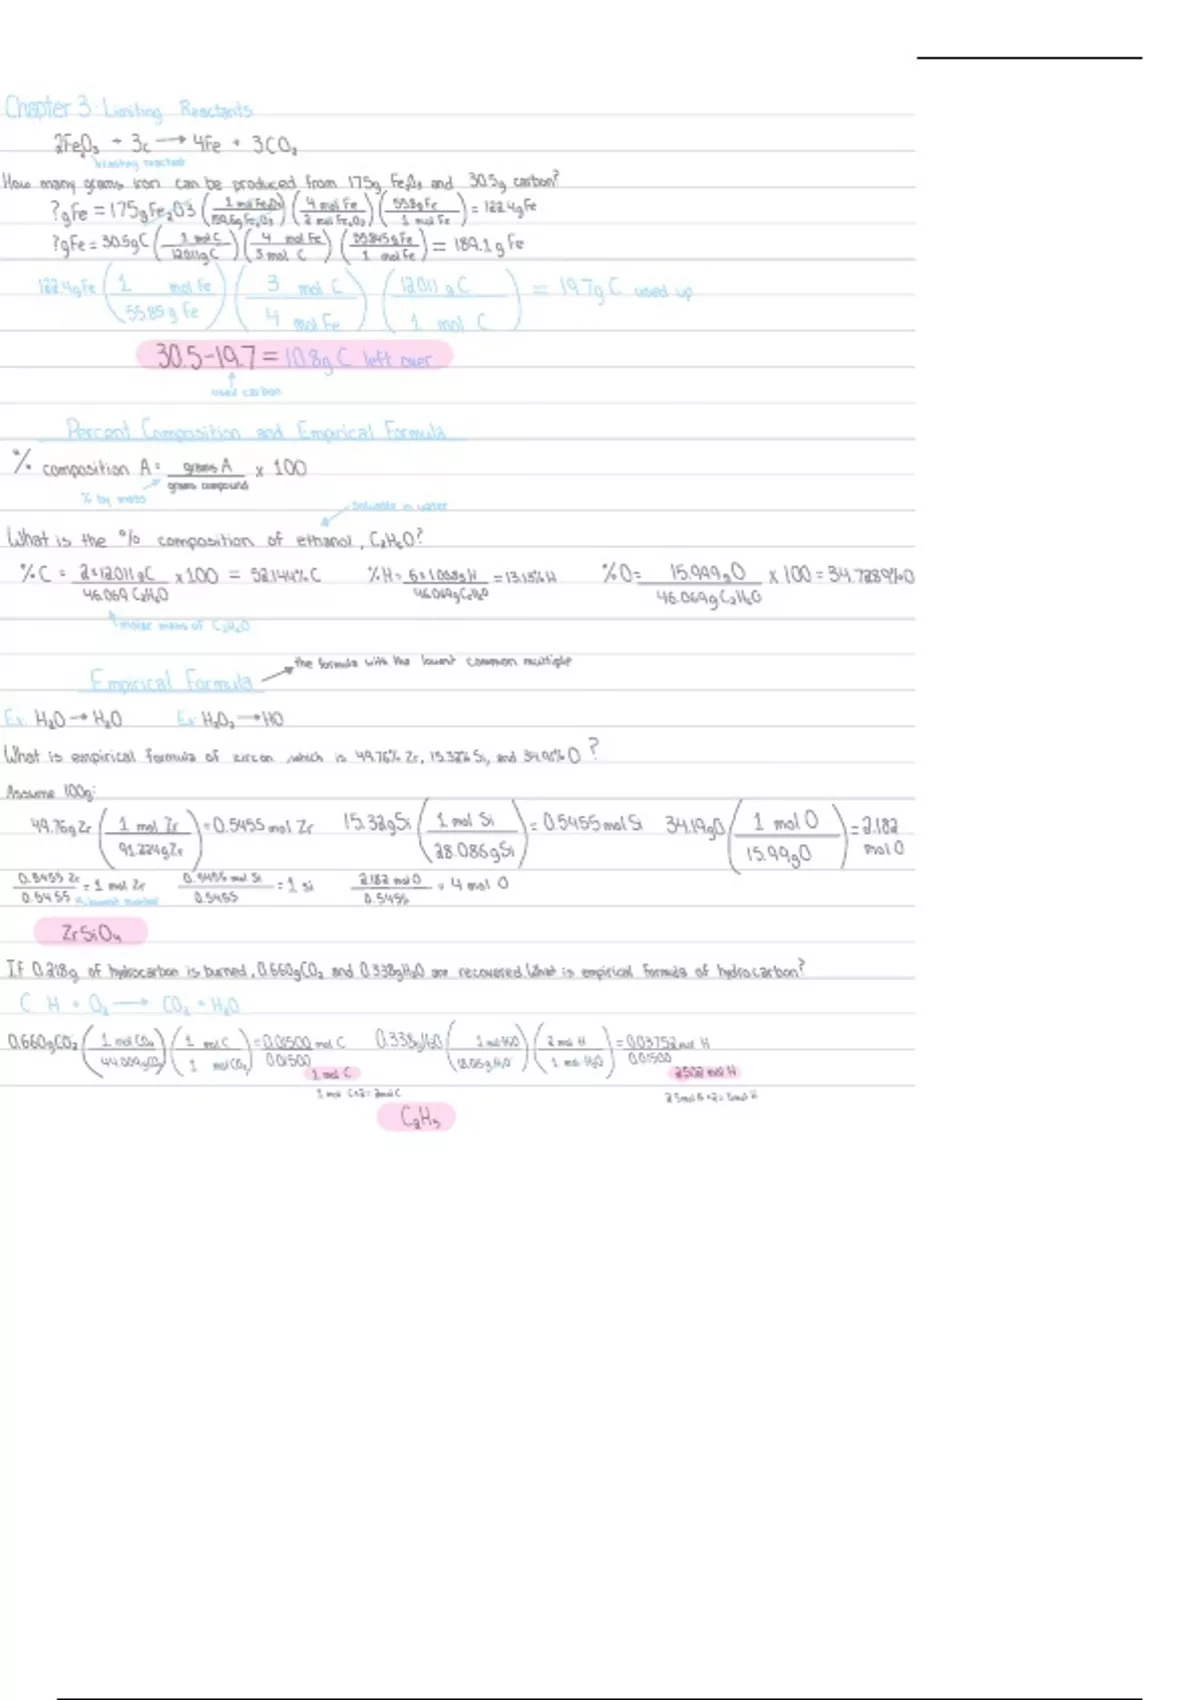 Chapter 3: Limiting Reactants
2Fe₂O₃ + 3C → 4Fe + 3CO₂
limiting reactant
How many grams iron can be produced from 175g Fe₂O₃ and 30.5g carbon?
?gFe = 175gFe₂O3 (1 mol Fe₂O₃ / 159.6g Fe₂O₃) (4 mol Fe / 2 mol Fe₂O₃) (55.8g Fe / 1 mol Fe) = 122.4gFe
?gFe = 30.5gC (1 mol C / 12.011g C) (4 mol Fe / 3 mol C) (55.845g Fe / 1 mol Fe) = 189.1g Fe
122.4gFe (1 mol Fe / 55.85g Fe) (3 mol C / 4 mol Fe) (12.011 g C / 1 mol C) = 19.7g C used up
30.5-19.7 = 10.8g C left over
used carbon
Percent Composition and Empirical Formula
% composition A = grams A / grams compound x 100
% by mass
soluable in water
What is the % composition of ethanol, C₂H₆O?
%C = 2×12.011gC / 46.069 C₂H₆O x 100 = 52.144% C %H = 6×1.008g H / 46.069g C₂H₆O = 13.13% H %O = 15.999gO / 46.069g C₂H₆O x 100 = 34.728%O
molar mass of C₂H₆O
the formula with the lowest common multiple
Empirical Formula
Ex: H₂O → H₂O Ex: H₂O₂ → HO
What is empirical formula of zircon, which is 49.76% Zr, 15.32% Si, and 34.91% O?
Assume 100g:
49.76g Zr (1 mol Zr / 91.224g Zr) = 0.5455 mol Zr 15.32gSi (1 mol Si / 28.086g Si) = 0.5455 mol Si 34.19gO (1 mol O / 15.99gO) = 2.182 mol O
0.5455 Zr / 0.5455 = 1 mol Zr 0.5455 mol Si / 0.5455 = 1 si 2.182 mol O / 0.5455 = 4 mol O
ZrSiO₄
If 0.218g of hydrocarbon is burned, 0.660gCO₂ and 0.338gH₂O are recovered. What is empirical formula of hydrocarbon?
C H + O₂ → CO₂ + H₂O
0.660gCO₂ (1 mol CO₂ / 44.009gCO₂) (1 mol C / 1 mol CO₂) = 0.01500 mol C / 0.01500 0.338gH₂O (1 mol H₂O / 18.05g H₂O) (2 mol H / 1 mol H₂O) = 0.03752 mol H / 0.01500
1 mol C 2.502 mol H
1 mol C×2 = 2mol C 2.5mol H×2 = 5mol H
C₂H₅